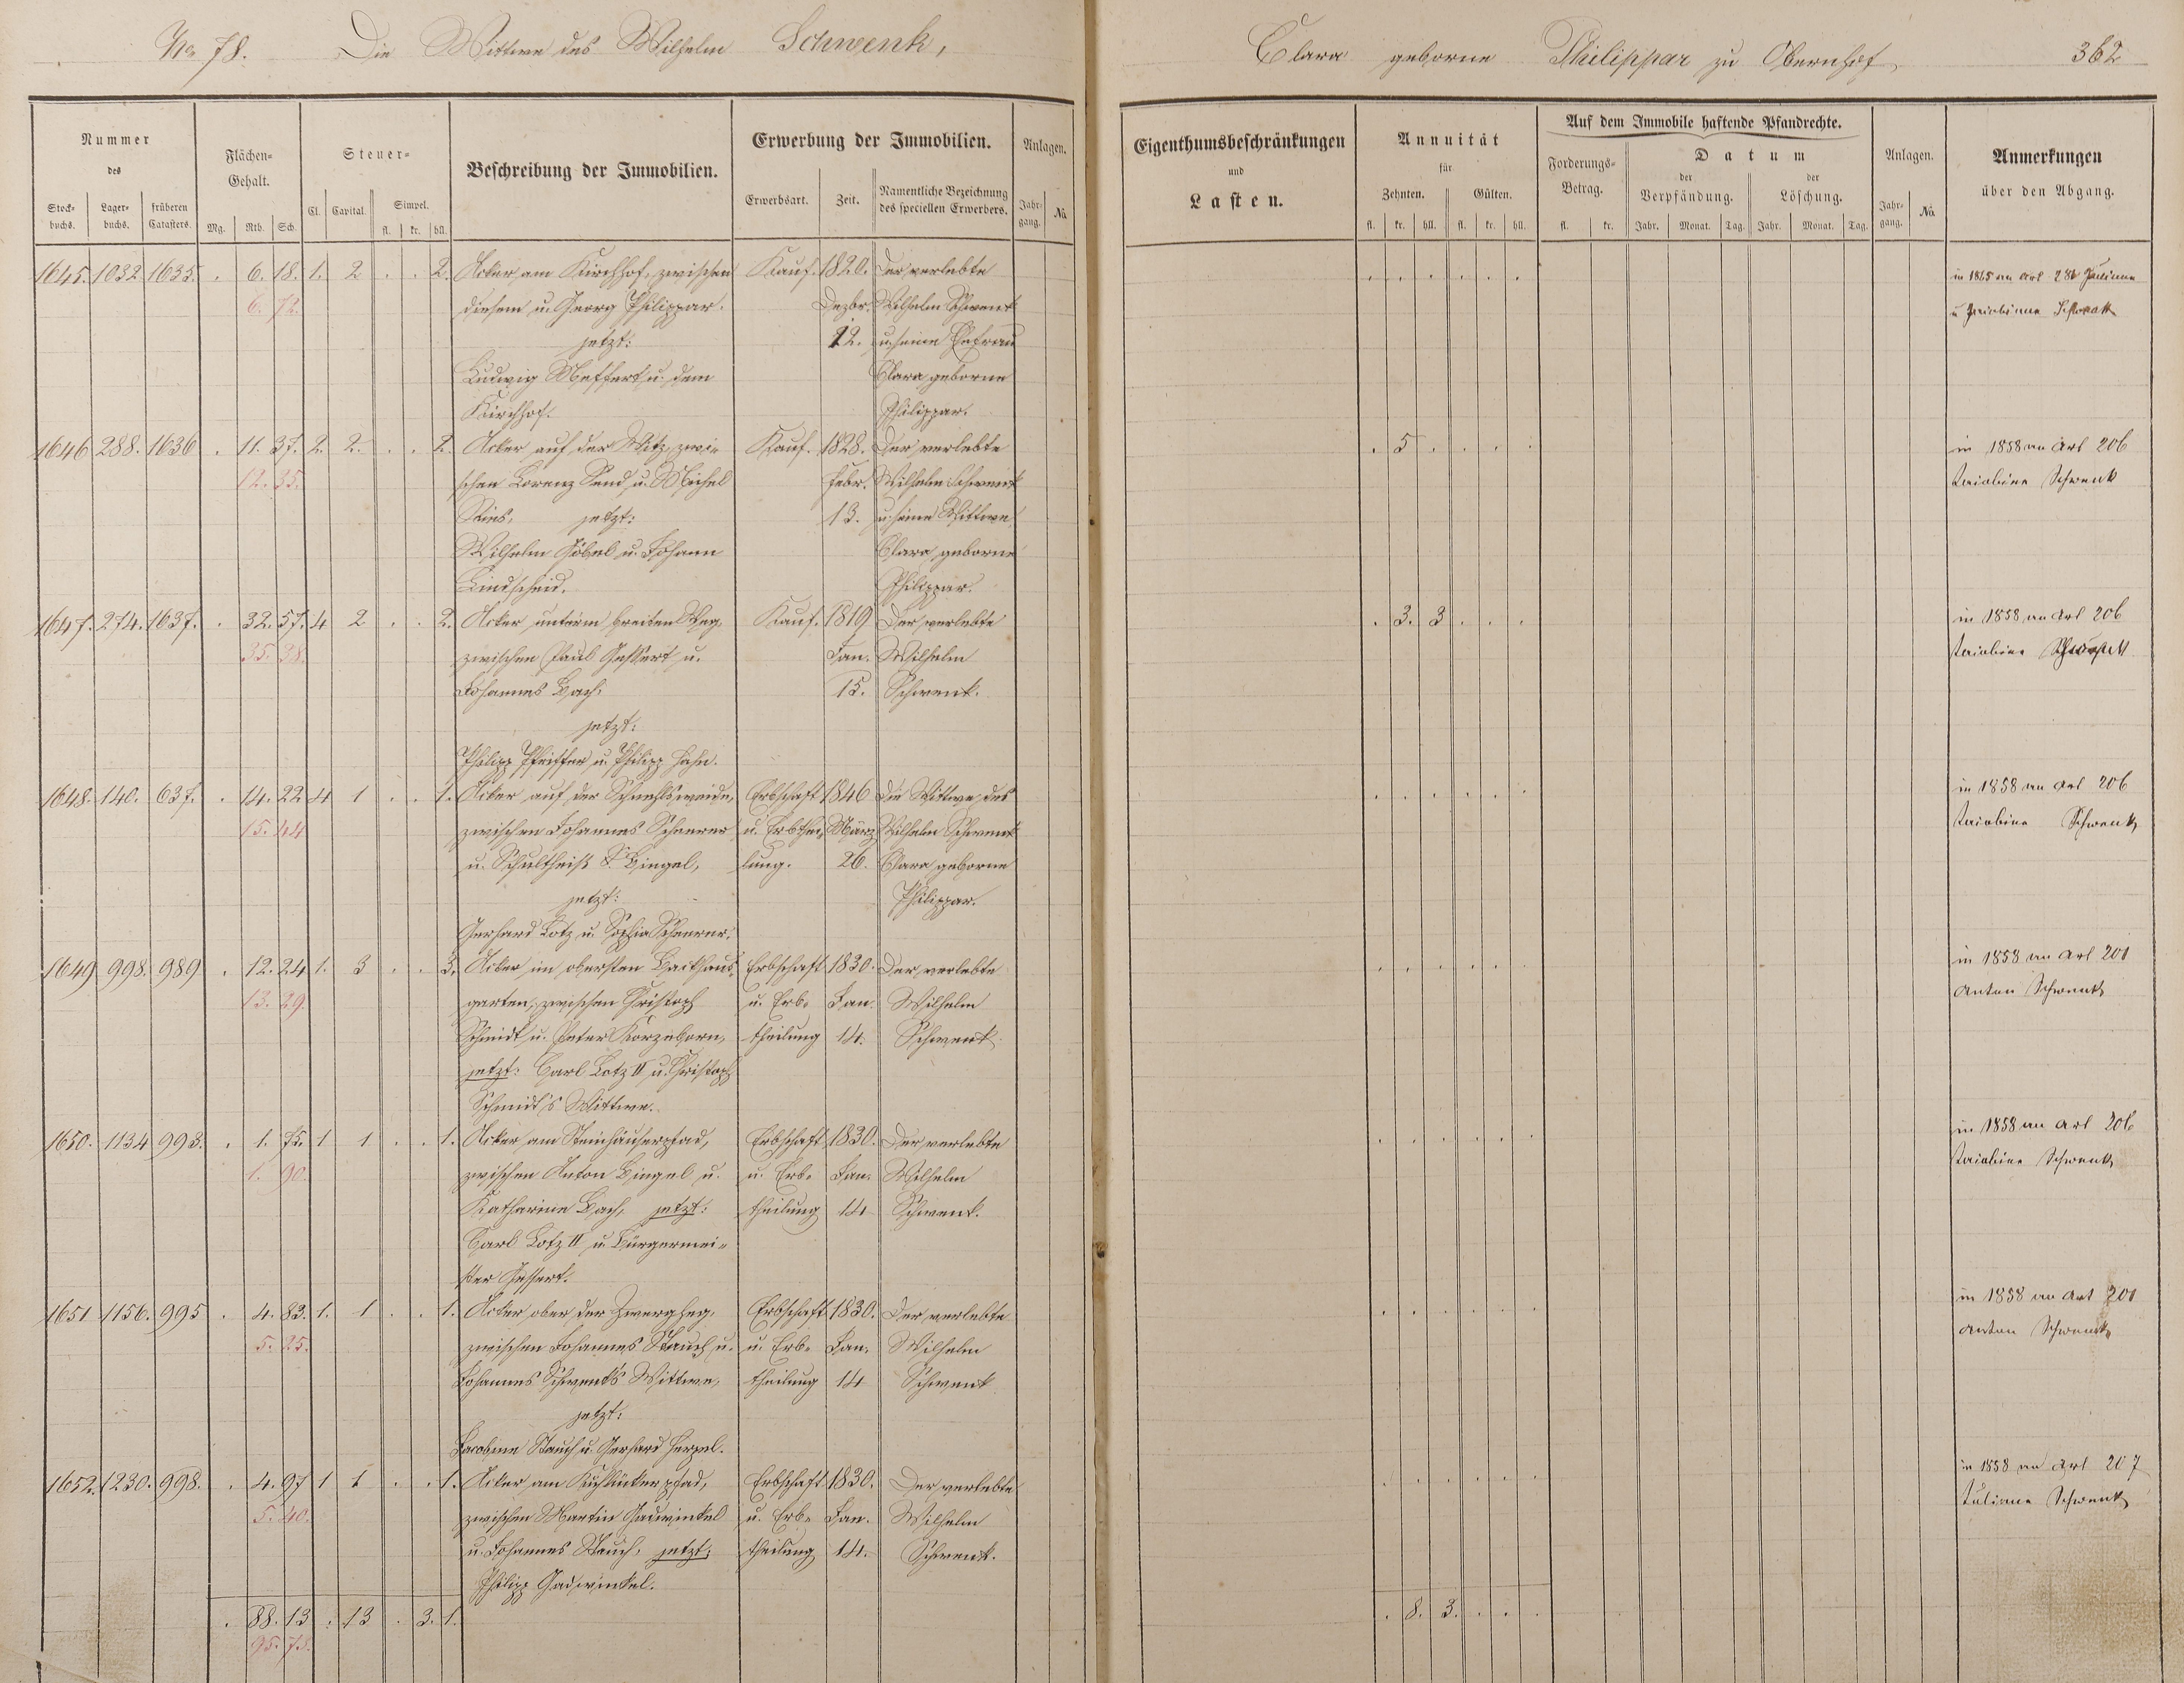 No 78. Die Wittwe des Wilhelm Schwenk,
Clara geborne Philippar zu Obernhof
362
Nummer
des
Stock-
buchs.
Lager-
buchs.
früheren
Catasters.
Flächen-
Gehalt.
Mg. Rth. Sch.
Steuer-
Cl. Capital. Simpel.
fl. kr. hll.
Beschreibung der Immobilien.
Erwerbung der Immobilien.
Erwerbsart. Zeit.
Namentliche Bezeichnung
des speciellen Erwerbers.
Anlagen.
Jahr-
gang.
No.
Eigenthumsbeschränkungen
und
Lasten.
Annuität
für
Zehnten. Gülten.
fl. kr. hll. fl. kr. hll.
Auf dem Immobile haftende Pfandrechte.
Forderungs-
Betrag.
fl. kr.
Datum
der
Verpfändung.
der
Löschung.
Jahr. Monat. Tag. Jahr. Monat. Tag.
Anlagen.
Jahr-
gang.
No.
Anmerkungen
über den Abgang.
1645. 1032 1635. . 6. 18. 1. 2 . . 2. Acker am Kirchhof, zwischen Kauf. 1820. Der verlebte
6. 72. diesem u. Georg Philippar. Dezbr. Wilhelm Schwenk
jetzt: 12. u. seine Ehefrau
Ludwig Meffert u. dem Clara geborne
Kirchhof. Philippar.
in 1865 an Art
1646 288. 1636 . 11. 37. 2. 2. . . 2. Acker auf der Mitz, zwi- Kauf. 1828. Der verlebte . 5 . . . .
12. 35. schen Lorenz u. Michel Febr. Wilhelm Schwenk
jetzt: 13. u. seine Wittwe
Wilhelm Göbel u. Johann Clara geborne
Lindscheid. Philippar.
in 1858 an Art 206
Schwenk
1647. 274. 1637. . 32. 57. 4 2 . . 2. Acker unterm breiten Weg Kauf. 1819 Der verlebte . 3. 3 . . .
35. 38. zwischen Paul Geffert u. Jan. Wilhelm
Johannes Bach, 15. Schwenk.
jetzt:
Philipp Pfeiffer u. Philipp Hahn.
in 1858 an Art 206
1648. 140. 637. . 14. 22 4 1 . . 1. Acker auf der Erbschaft 1846 Die Wittwe des
15. 44 zwischen Johannes Scheerer u. Erbthei- März Wilhelm Schwenk
u. Schultheiß Bingel, lung. 26. Clara geborne
jetzt: Philippar.
Gerhard Lotz u. Sophia Scheerer.
in 1858 an Art 206
Schwenk
1649 998. 989 . 12. 24 1. 3 . . 3. Acker im obersten Backhaus- Erbschaft 1830. Der verlebte
13. 29. garten, zwischen Christoph u. Erb- Jan. Wilhelm
Schmidt u. Peter Korzeborn, theilung 14. Schwenk.
jetzt: Carl Lotz II u. Christoph
Schmidt's Wittwe.
in 1858 an Art 201
Anton Schwenk
1650. 1134 993. . 1. 75. 1 1 . . 1. Acker am Steinhäuserpfad, Erbschaft 1830. Der verlebte
1. 90. zwischen Anton Bingel u. u. Erb- Jan. Wilhelm
Katharine Bach, jetzt: theilung 14 Schwenk.
Carl Lotz II u. Bürgermei-
ster Geffert.
in 1858 an Art 206
Schwenk
1651 1156. 995 . 4. 83. 1. 1 . . 1. Acker ober der Erbschaft 1830. Der verlebte
5. 25. zwischen Johannes Stauch u. u. Erb- Jan. Wilhelm
Johannes Schwenk's Wittwe, theilung 14 Schwenk
jetzt:
Jacobine Stauch u. Gerhard Herpel.
in 1858 an Art 201
Anton Schwenk
1652. 1230. 998. . 4. 97 1 1 . . 1. Acker am Erbschaft 1830. Der verlebte
5. 40. zwischen Martin Gadwinkel u. Erb- Jan. Wilhelm
u. Johannes Stauch, jetzt: theilung 14. Schwenk.
Philipp Gadwinkel.
in 1858 an Art 207
Juliana Schwenk
. 88. 13 . 13 . 3. 1. . 8. 3. . . .
95. 73.